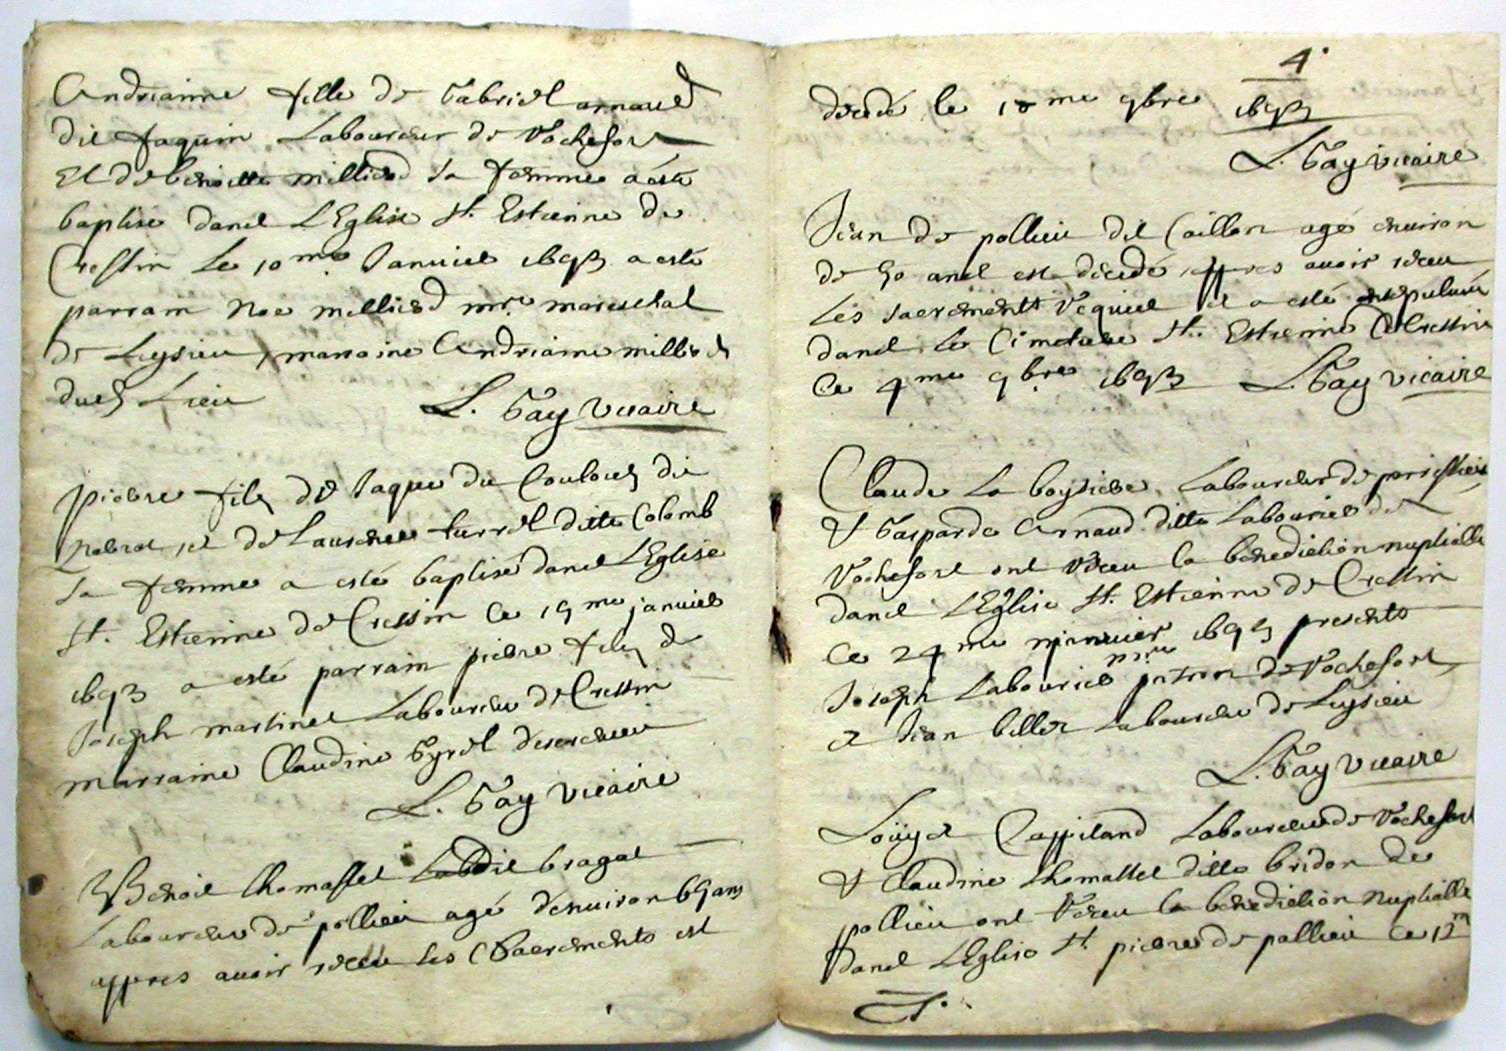 Andrianne fille de Gabriel arnaud
dit Jaquin Laboureur de Rochefort
Et de benoitte milliend sa femme a esté
baptisé dans L'Eglise St. Estienne de
Cressin Le 10me Janvier 1693 a esté
parrain noe milliend mre mareschal
de Luysieu, marraine Andrianne
dud Lieu
L. Gay vicaire
pierre fils de Jaque du
et de Laurence turrel ditte Colomb
sa femme a esté baptisé dans L'Eglise
St. Estienne de Cressin Ce 19me janvier
1693 a esté parrain pierre fils de
Joseph martinet Laboureur de Cressin
marraine Claudine
L. Gay vicaire
Benoit thomasset dit bragat
Laboureur de pollieu agé d'environ 65 ans
appres avoir receu Les Sacrements est
4.
decedé le 18me 9bre 1693
L. Gay vicaire
Jean de pollieu dit Caillon agé environ
de 50 ans est decedé appres avoir receu
Les sacrements Requis et a esté ensepulturé
dans Le Cimetiere St. Estienne de Cressin
Ce 4me 9bre 1693 L. Gay vicaire
Claude La boysiere, Laboureur de
& Gasparde Arnaud ditte Labouries de
Rochefort ont Receu la benediction nuptialle
dans L'Eglise St. Estienne de Cressin
Ce 24me 1693 presents
Joseph Labouries mre patron de Rochefort
et Jean billet Laboureur de Luysieu
L. Gay vicaire
Loüys Cappitand Laboureur de Rochefort
& Claudine thomasset ditte bridon de
pollieu ont Receu la benediction nuptialle
dans L'Eglise St. pierre de pollieu ce 12m